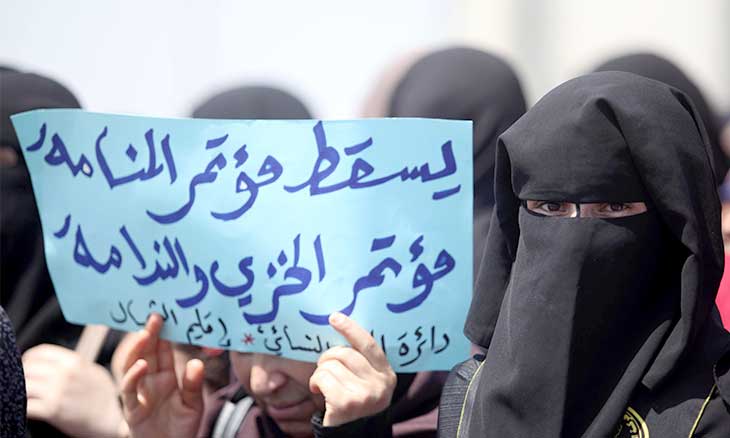 يسقط مؤتمر المنامه
مؤتمر الخزي والندامه
دائرة النسائي * إقليم الشمال